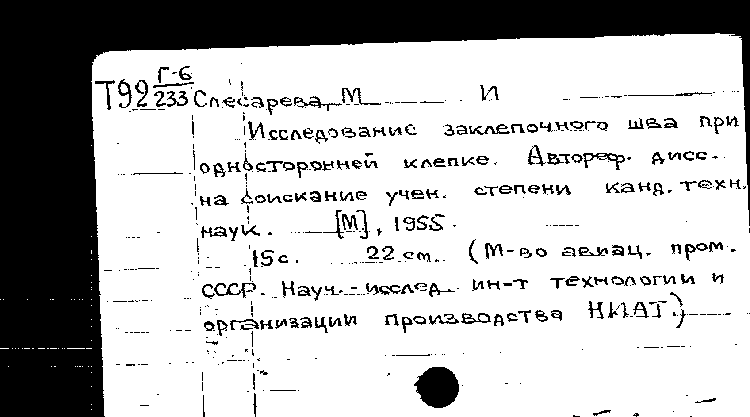 Т92 Г-6
233 Слесарева, М И
Исследование заклепочного шва при
односторонней клепке. Автореф. дисс.
на соискание учен. степени канд. техн.
наук. [М], 1955.
15 с. 22 см. (М-во авиац. пром.
СССР. Науч.-исслед. ин-т технологии и
организации производства НИАТ.)